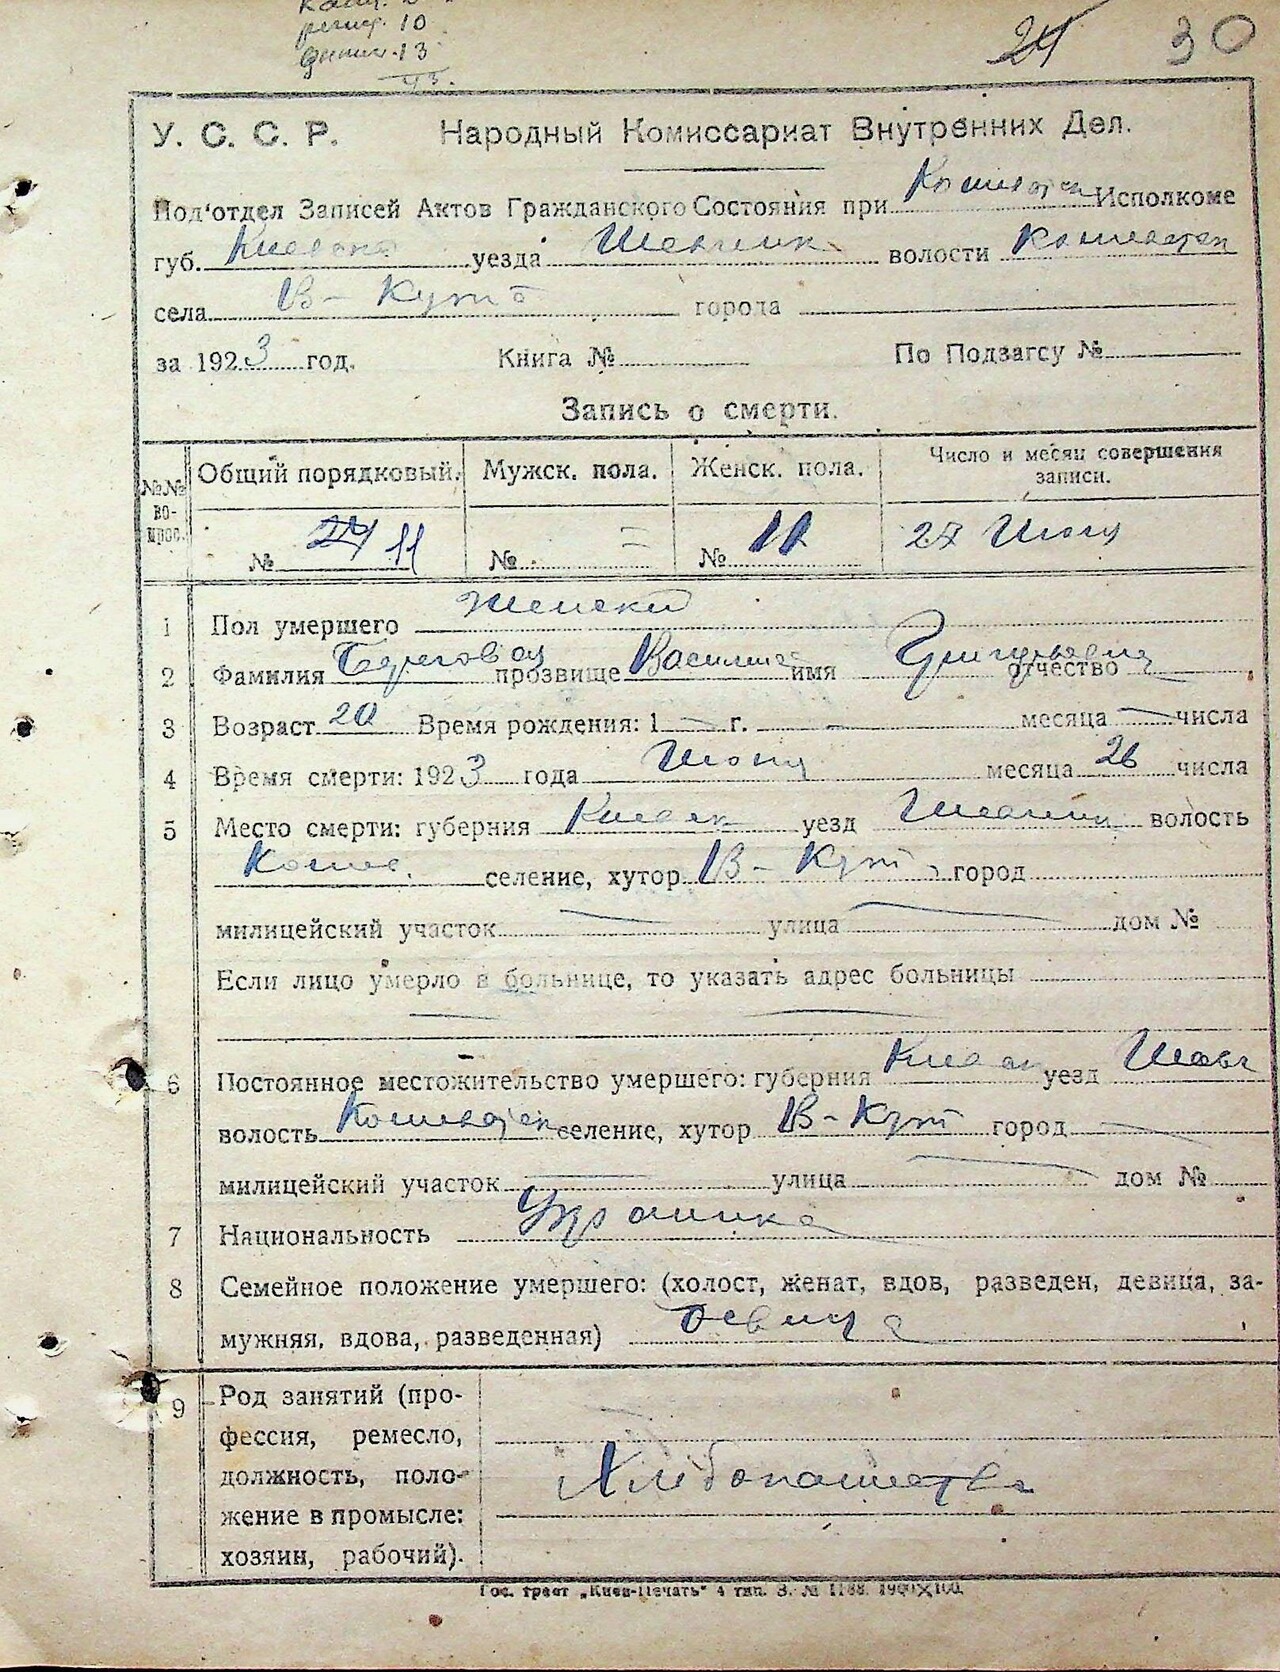 регистр. 10
13
24 30
У. С. С. Р. Народный Комиссариат Внутренних Дел.
Под'отдел Записей Актов Гражданского Состояния при Исполкоме
губ. Киевска уезда Шевченк волости Кошеватск
села В-Кути города
за 1923 год. Книга № По Подзагсу №
Запись о смерти.
№№ вопрос. Общий порядковый. Мужск. пола. Женск. пола. Число и месяц совершения записи.
№ 24 11 № = № 11 27 Июня
1 Пол умершего Женский
2 Фамилия прозвище Василиса имя Григорьевна отчество
3 Возраст 20 Время рождения: 1 — г. — месяца — числа
4 Время смерти: 1923 года Июня месяца 26 числа
5 Место смерти: губерния Киевск уезд Шевченк волость
Кошев. селение, хутор В-Кут город
милицейский участок — улица — дом №
Если лицо умерло в больнице, то указать адрес больницы
— —
6 Постоянное местожительство умершего: губерния Киевск уезд Шевч
волость Кошеватск селение, хутор В-Кут город —
милицейский участок — улица — дом №
7 Национальность Украинка
8 Семейное положение умершего: (холост, женат, вдов, разведен, девица, за-
мужняя, вдова, разведенная) девица
9 Род занятий (про-
фессия, ремесло,
должность, поло- Хлібопашество
жение в промысле:
хозяин, рабочий).
Гос. трест „Киев-Печать" 4 тип. З. № 1188. 1900×100.